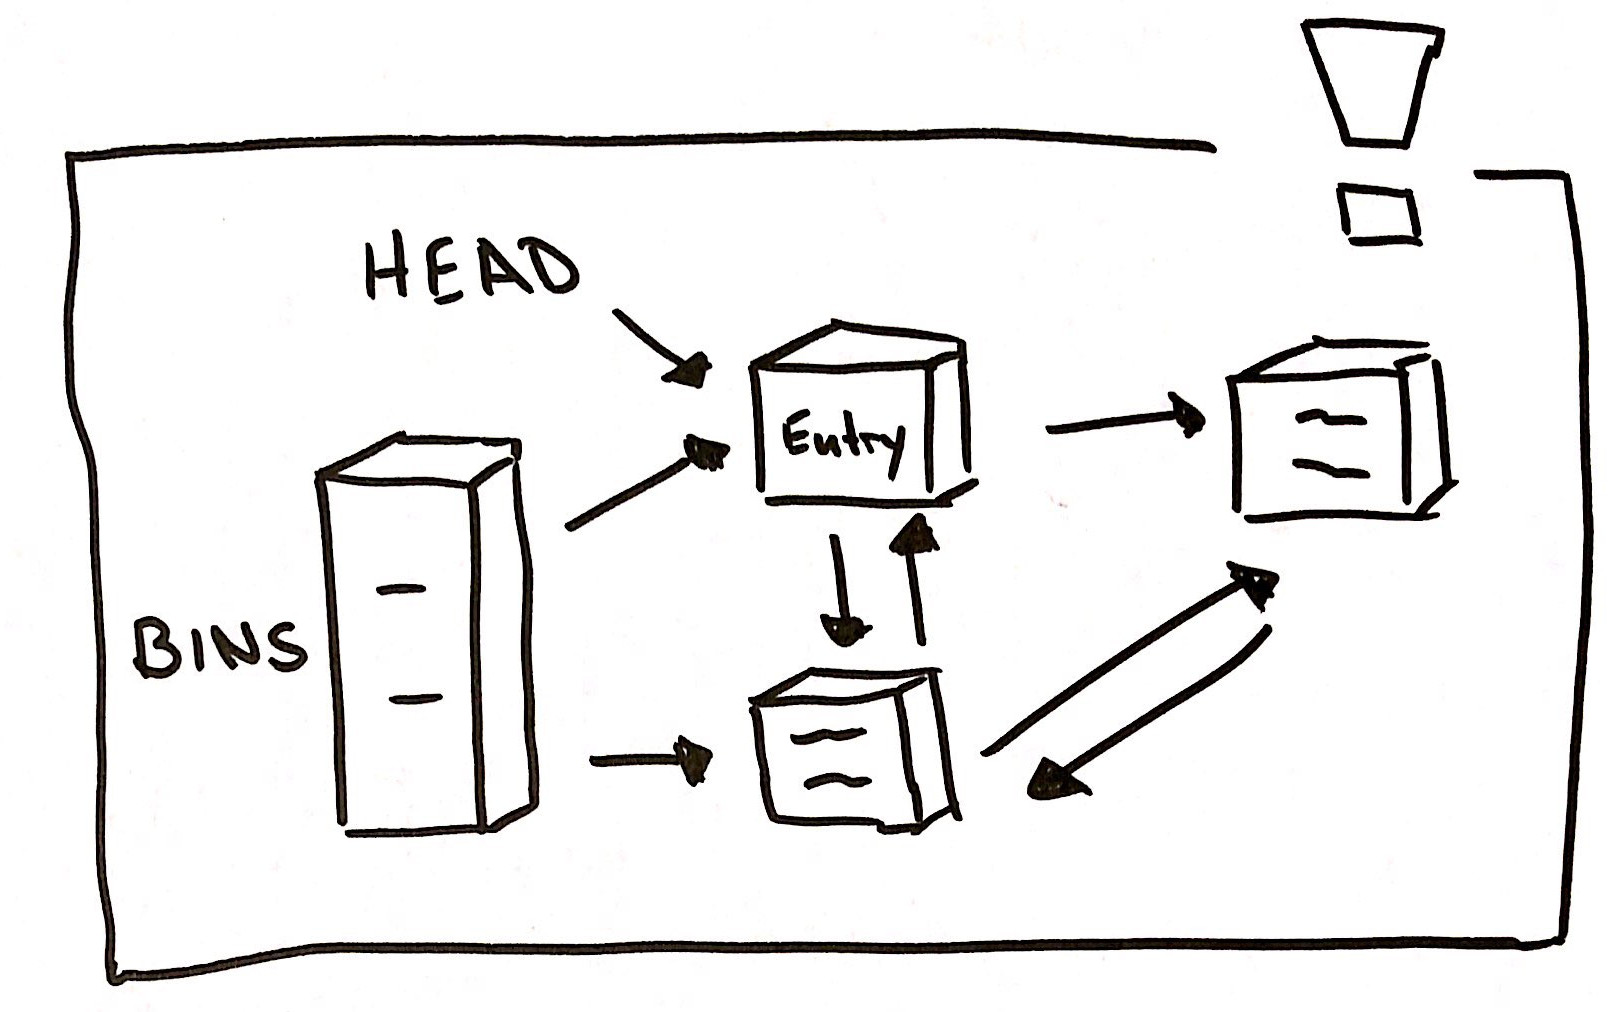 HEAD
Entry
BINS